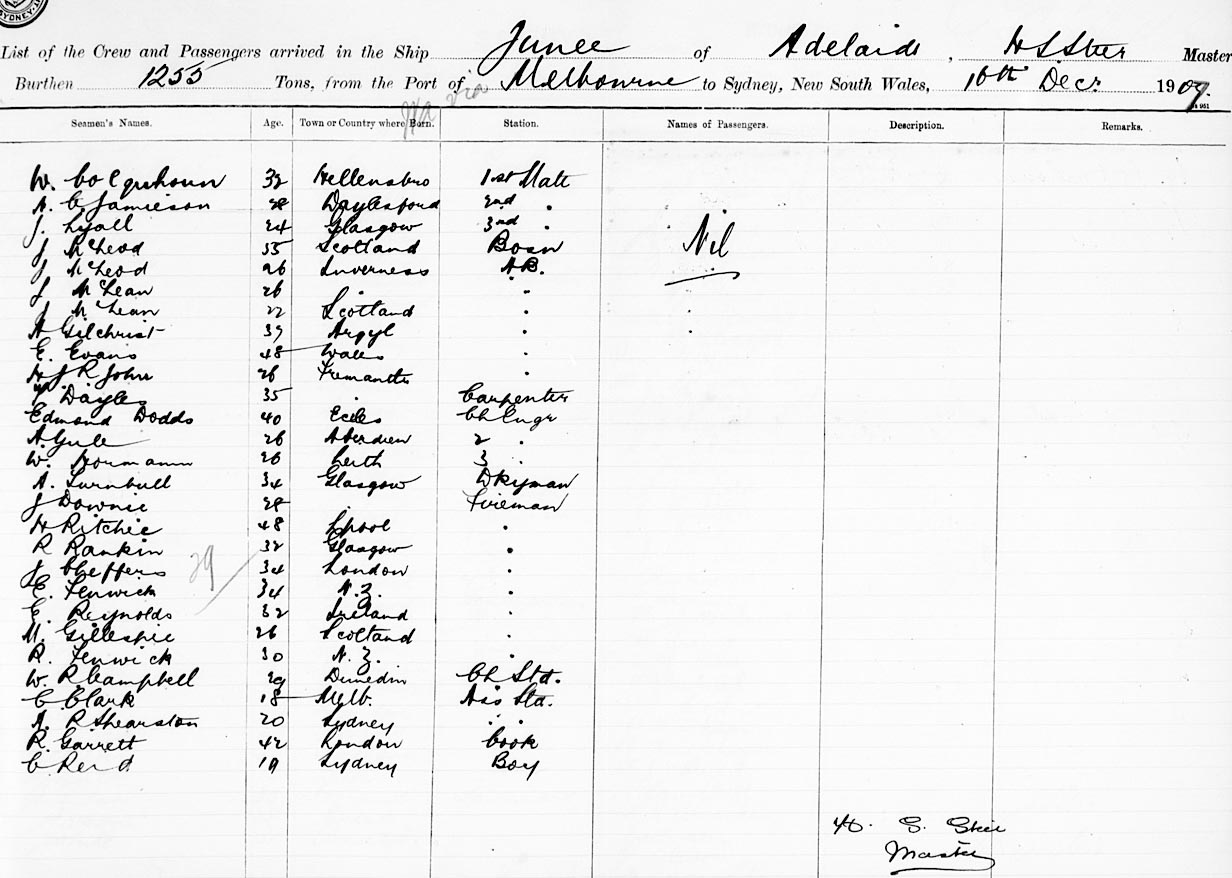 SYDNEY
List of the Crew and Passengers arrived in the Ship Junee of Adelaide, Master
Burthen 1255 Tons, from the Port of Melbourne to Sydney, New South Wales, 16th Decr. 1907.
via
Seamen's Names. Age. Town or Country where Born. Station. Names of Passengers. Description. Remarks.
W. Colquhoun 32 Hellensbro 1st Mate
A. C Jamieson 28 Daylesford 2nd "
J. Lyall 24 Glasgow 3rd " Nil
J McLeod 55 Scotland Bosn
J McLeod 26 Inverness A.B.
J McLean 26 " "
J McLean 22 Scotland "
A Gilchrist 39 Argyl "
E. Evans 48 Wales "
H J R John 26 Fremantle "
35 " Carpenter
Edmond Dodds 40 Eccles Ch Engr
A. Yule 26 Aberdeen 2 "
W. Hormann 26 Leith 3 "
A. Turnbull 34 Glasgow Dkyman
J Downie 28 " Fireman
H Ritchie 48 Lpool "
R Rankin 32 Glasgow "
J Cheffers 34 London "
E. Fenwick 34 N.Z. "
E. Reynolds 32 Ireland "
M. Gillespie 26 Scotland "
R. Fenwick 30 N.Z. "
W. R Campbell 29 Dunedin Ch Std.
C Clark 18 Melb. Ass Std.
A. R Shearston 20 Sydney " "
R. Garrett 42 London Cook
C Reid 19 Sydney Boy
29
Master